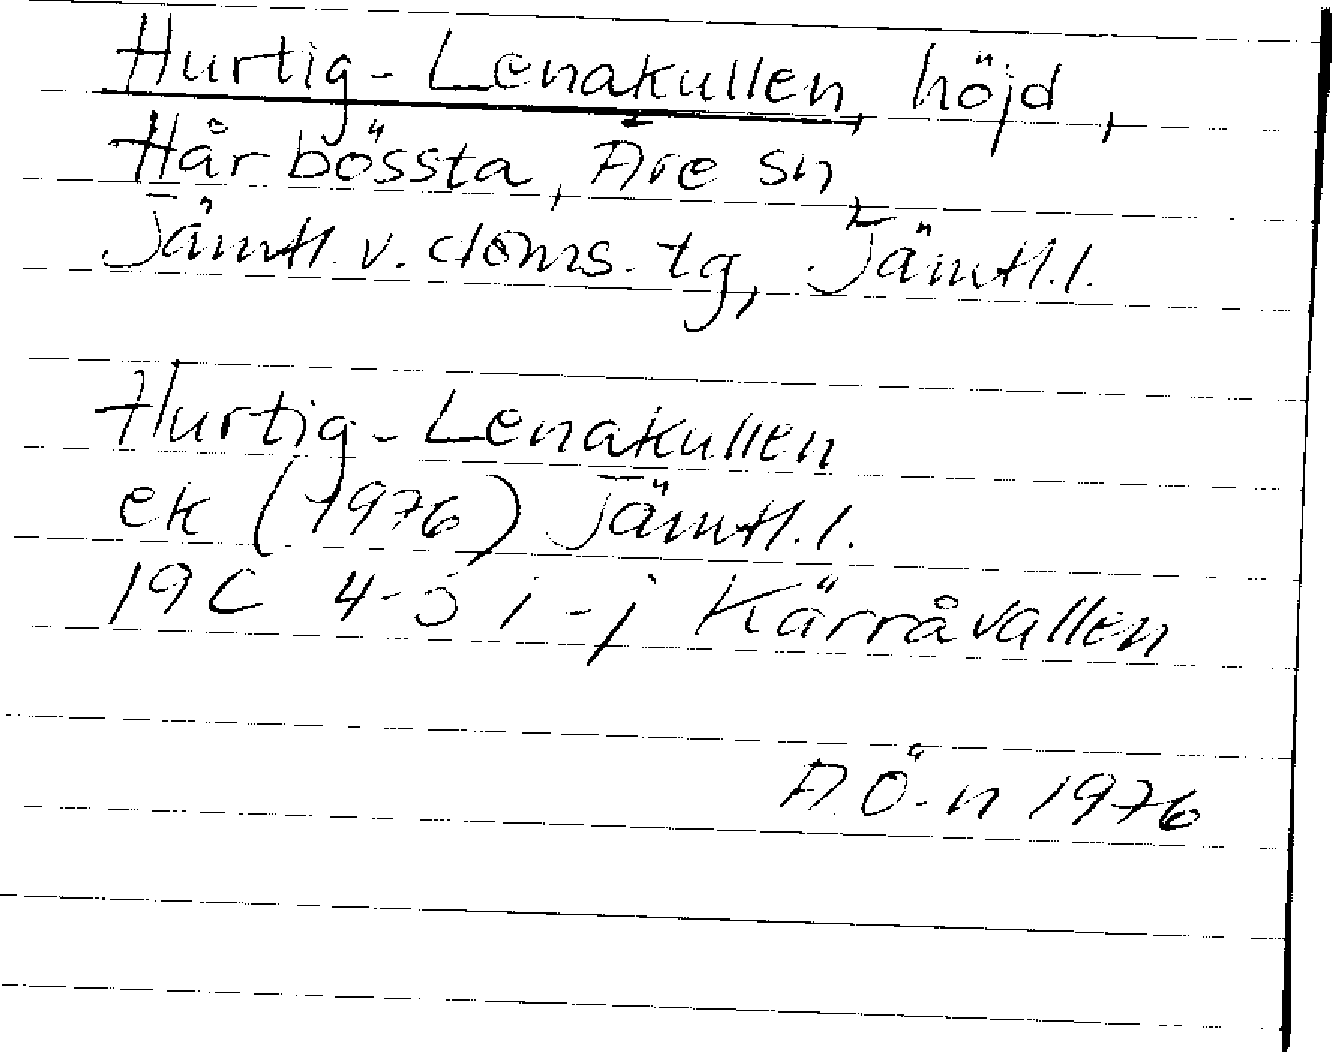 Hurtig-Lenakullen, höjd,
Hårbössta, Åre sn,
Jämtl. v. doms. tg, Jämtl.l.
Hurtig-Lenakullen
ek (1976) Jämtl.l.
19C 4-5 i-j Kärråvallen
A.Ö-n 1976